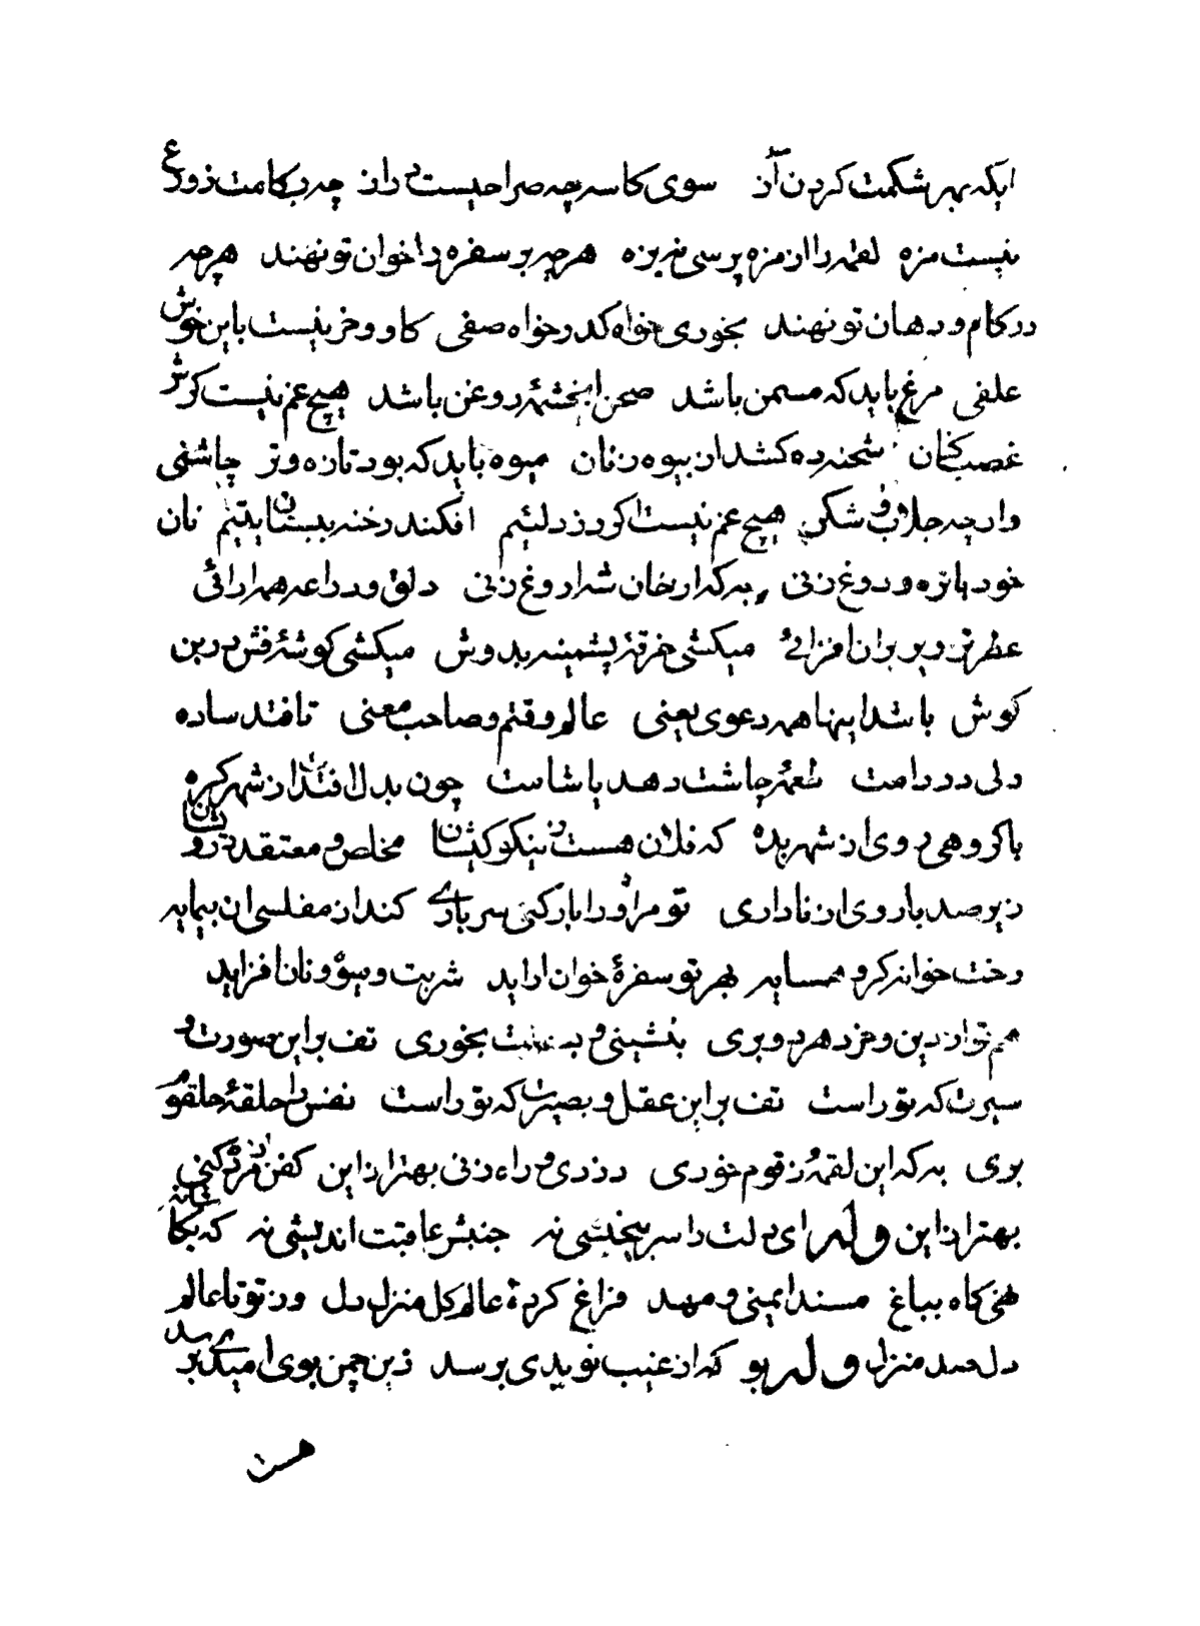 ایکه بهر شکمت کردن آز سوی کاسه چه صراحیست دراز چه بکامت ز ورع
نیست مزه لقمه را از مزه پرسی نه بزه هر چه بر سفره و اخوان تو نهند هر چه
در کام و دهان تو نهند بخوری خواه کدر خواه صفی کاو و خر نیست باین خوش
علفی مرغ باید که مسمن باشد صحن را بخشه روغن باشد هیچ غم نیست کرش
غصب کنان شحنه ده کشد از بیوه زنان میوه باید که بود تازه و تر چاشنی
وار چه جلاب و شکر هیچ غم نیست اکر رزد لئیم افکند رخنه ببستان یتیم نان
خود با تره و دوغ زنی به که از خان شه اروغ زنی دلق و دراعه همرارائی
عطر تزویر بران افزائی میکشی خرقه پشمینه بدوش میکشی کوشه فش در بن
کوش باشد اینها همه دعوی یعنی عالم وقتم و صاحب معنی تا فتد ساده
دلی در دامت طعمه چاشت دهد یا شامت چون بدلال فتد از شهر کره
با کروهی دوی از شهر بده که فلان هست ز نیکو کیشان مخلص و معتقد درویشان
دیر صد بار وی از ناداری تو مر او را بار کنی سر باری کند از مفلسی ان بیمایه
رخت خوانه کرو همسایه بهر تو سفره خوان اراید شربت و میوه و نان افزاید
هم تواز دین و خرد هر دو بری بنشینی و بخوری تف بر این صورت و
سیرت که تو راست تف بر این عقل و بصیرت که تو راست نفس را حلقه حلقوم
بری به که این لقمه ز قوم خوری دزدی و راه زنی بهتر از این کفن از مرده کنی
بهتر از این وله ای دلت را سر بیخیشی نه جنبش عاقبت اندیشی نه که بکاشانه
هی کاه بباغ مسند ایمنی و مهد فراغ کرده عالم کل منزل دل وز تو تا عالم
دل صد منزل وله بو که از غیب نویدی برسد زین چمن بوی امیدی برسد
هست